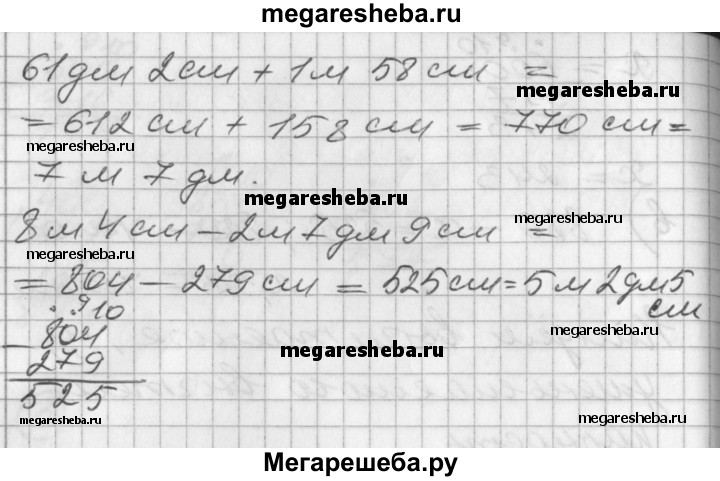 megaresheba.ru
61дм 2см + 1м 58см =
megaresheba.ru
= 612см + 158см = 770см =
7м 7дм.
megaresheba.ru
megaresheba.ru
8м 4см - 2м 7дм 9см =
megaresheba.ru
megaresheba.ru
= 804 - 279см = 525см = 5м 2дм 5
см
. . 9 10
megaresheba.ru
- 804
megaresheba.ru
279
525
megaresheba.ru
megaresheba.ru
Мегарешеба.ру